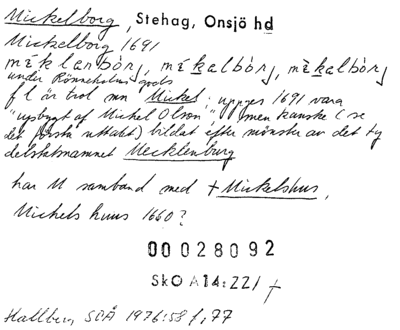 Mickelborg, Stehag, Onsjö hd
Mickelborg 1691
méklarbòrj, mékalbòrj, mèkalbòrj
under Rönneholms gods
f l är trol mn Mickel; uppges 1691 vara
"upbygt af Michel Olson", men kanske (se
det första uttalet) bildat efter mönster av det ty
delstatsnamnet Mecklenburg
har M samband med + Mickelshus,
Michels huus 1660?
00028092
SkO A14:221
Hallberg, SOÅ 1976:58 f, 77